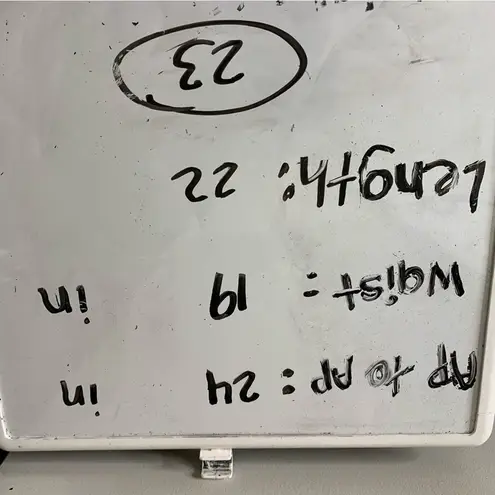 Ap to Ap : 24 in
Waist : 19 in
Length : 22
23